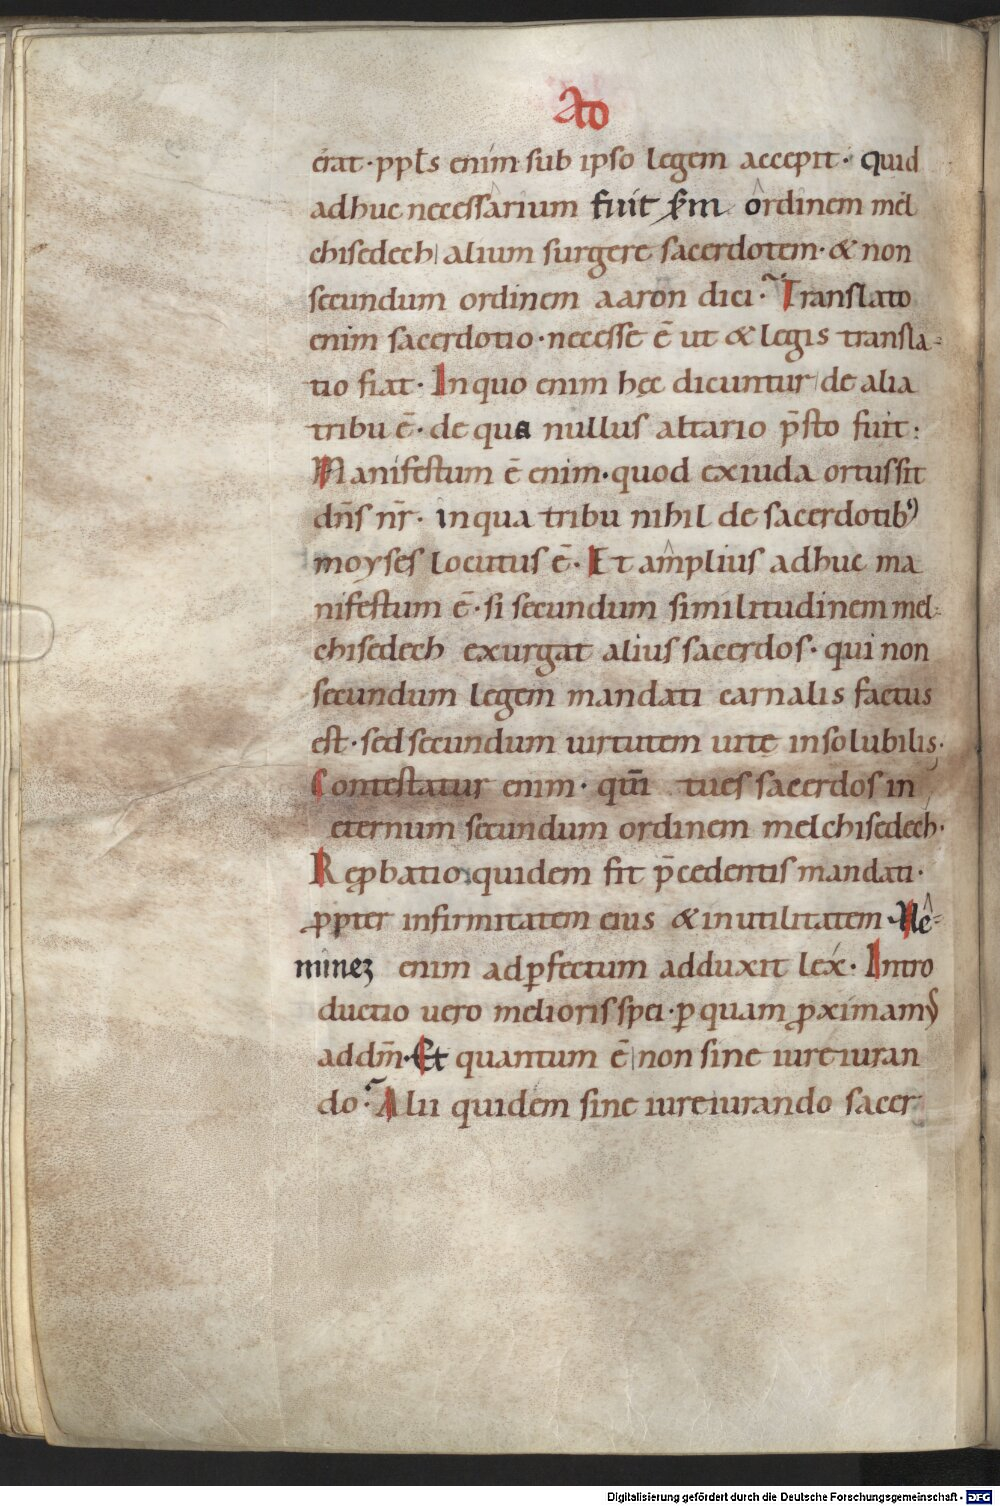 AD
erat · ppls enim sub ipso legem accepit · quid
adhuc necessarium fuit scdm ordinem mel
chisedech alium surgere sacerdotem · & non
secundum ordinem aaron dici · Translato
enim sacerdotio · necesse ē ut & legis transla-
tio fiat · In quo enim hęc dicuntur de alia
tribu ē · de qua nullus altario p̄sto fuit :
Manifestum ē enim · quod ex iuda ortus sit
dn̄s nr̄ · in qua tribu nihil de sacerdotib;
moyses locutus ē · Et amplius adhuc ma
nifestum ē · si secundum similitudinem mel-
chisedech exurgat alius sacerdos · qui non
secundum legem mandati carnalis factus
est · sed secundum uirtutem uitę insolubilis ·
Contestatur enim · qm̄ tu es sacerdos in
eternum secundum ordinem melchisedech ·
Reꝓbatio quidem fit p̄cedentis mandati ·
ꝓpter infirmitatem eius & inutilitatem · Ne-
minez enim ad ꝑfectum adduxit lex · Intro
ductio uero melioris spei · ꝑ quam ꝓximamꝰ
ad dm̄ · Et quantum ē non sine iureiuran
do · Alii quidem sine iureiurando sacer
Digitalisierung gefördert durch die Deutsche Forschungsgemeinschaft - DFG